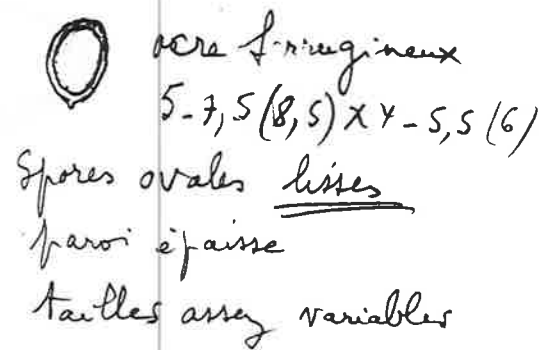 ocre ferrugineux
5-7,5(8,5) X 4-5,5(6)
Spores ovales lisses
paroi épaisse
tailles assez variables